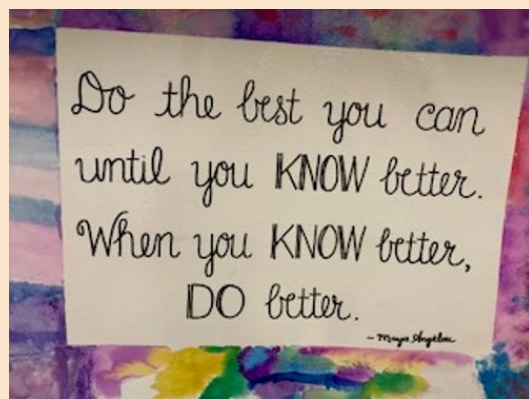 Do the best you can
until you KNOW better.
When you KNOW better,
DO better.
- Maya Angelou